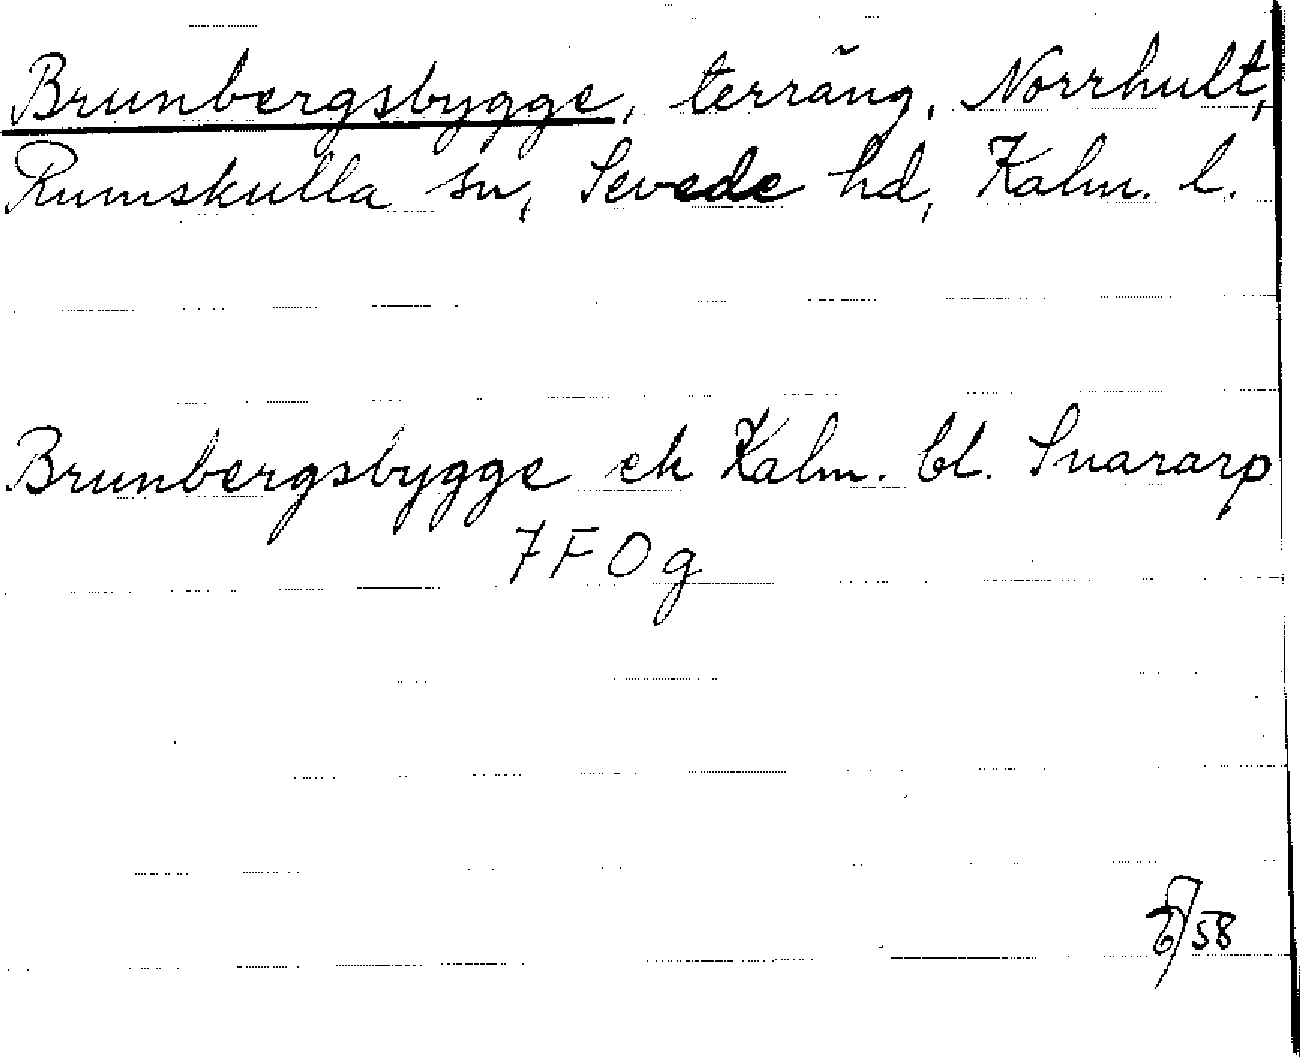 Brunbergsbygge, terräng, Norrhult,
Rumskulla sn, Sevede hd, Kalm. l.
Brunbergsbygge ek Kalm. bl. Snararp
7 F 0 g
58